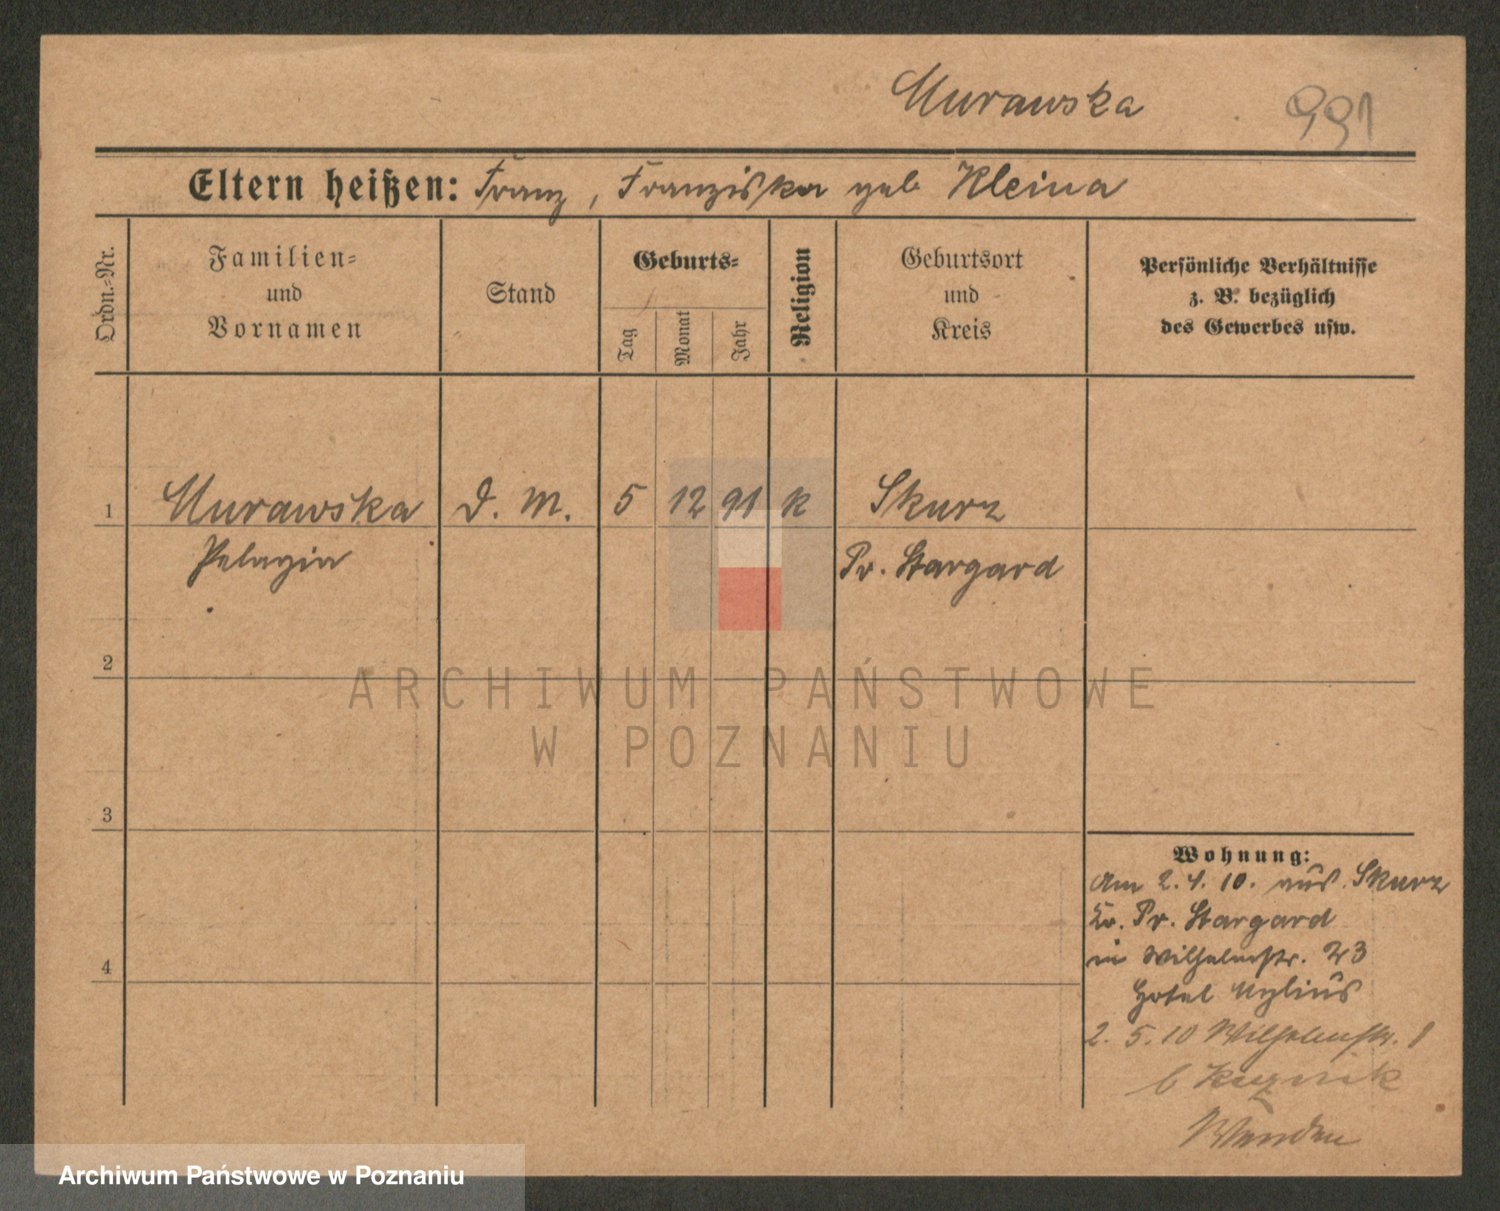 Murawska 991
Eltern heißen: Franz, Franziska geb. Kleina
Ordn.-Nr.
Familien-
und
Vornamen
Stand
Geburts-
Tag
Monat
Jahr
Religion
Geburtsort
und
Kreis
Persönliche Verhältnisse
z. B. bezüglich
des Gewerbes usw.
1 Murawska D. M. 5 12 91 k Skurz
Pelagia Pr. Stargard
2
3
4
Wohnung:
Am 2. 4. 10. aus Skurz
Kr. Pr. Stargard
in Wilhelmstr. 23
Hotel Mylius
2. 5. 10 Wilhelmstr. 1
b
ARCHIWUM PAŃSTWOWE
W POZNANIU
Archiwum Państwowe w Poznaniu